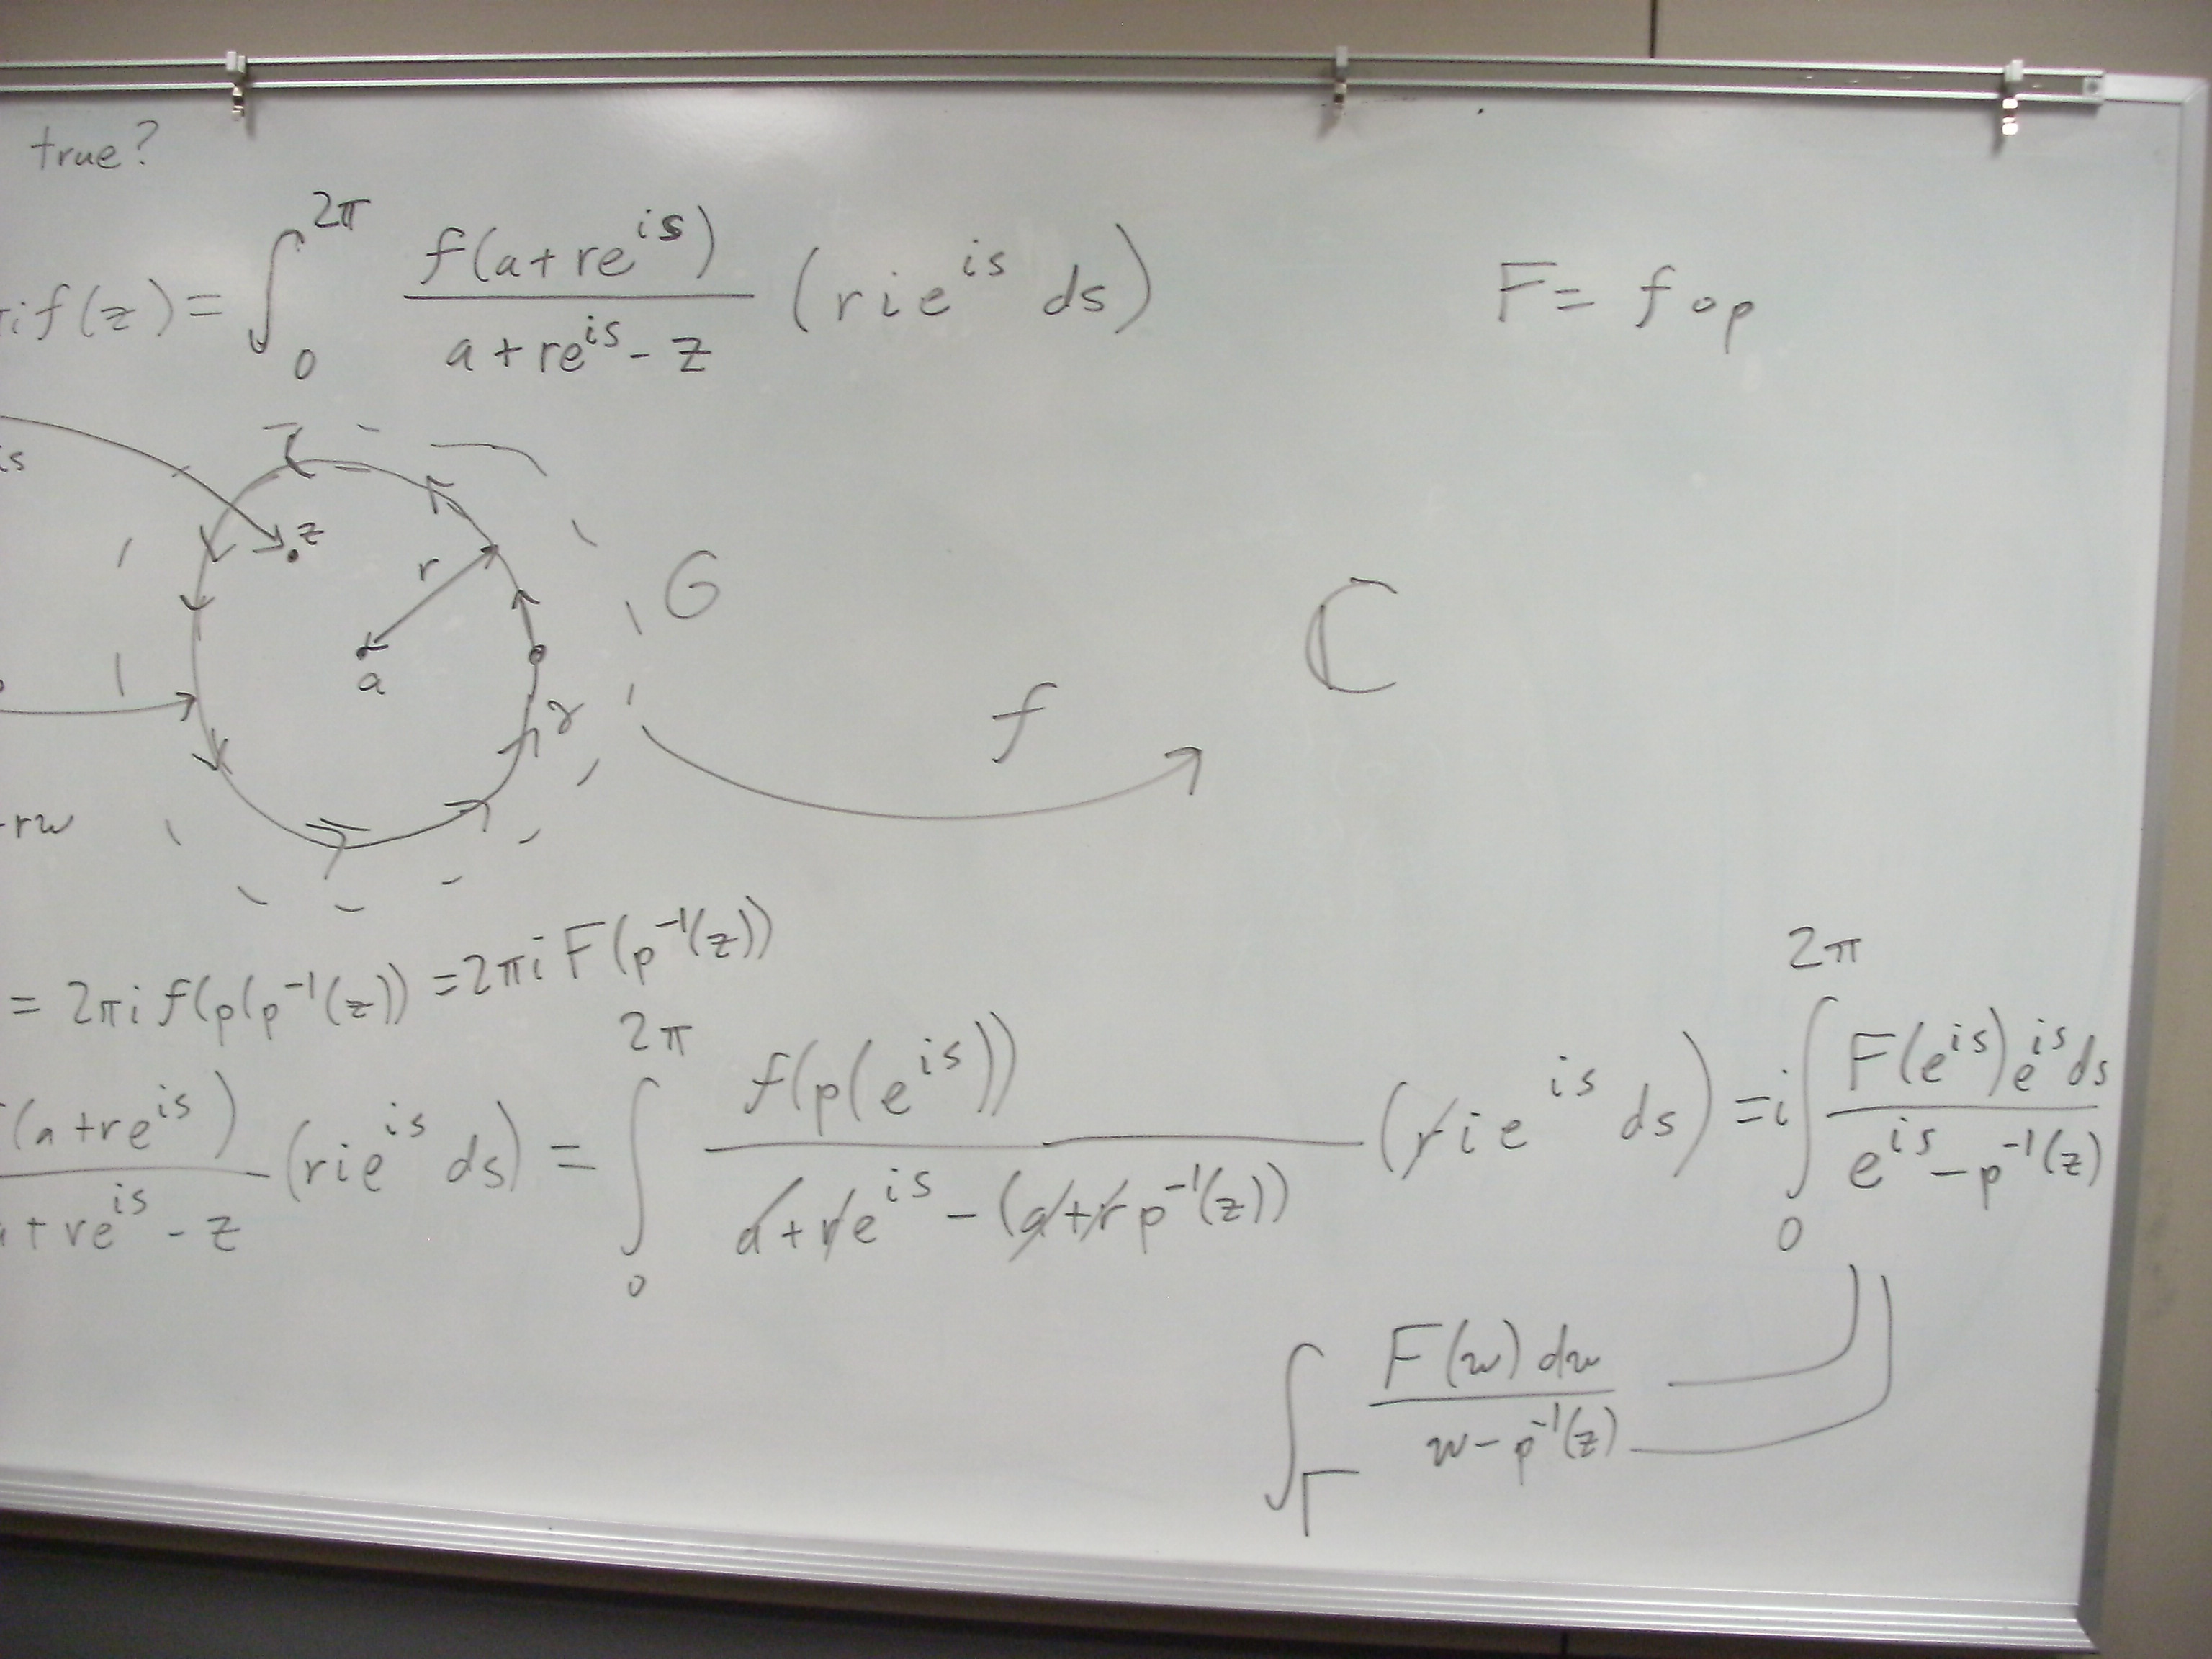 true?
πi f(z) = ∫₀^{2π} f(a+re^{is}) / (a+re^{is} - z) (r i e^{is} ds)
F = f∘p
is
z
r
G
a
γ
f
ℂ
rw
= 2πi f(p(p^{-1}(z)) = 2πi F(p^{-1}(z))
(a+re^{is}) / (a+re^{is} - z) (rie^{is} ds) = ∫₀^{2π} f(p(e^{is})) / (a+re^{is} - (a+r p^{-1}(z))) (r i e^{is} ds) = i ∫₀^{2π} F(e^{is}) e^{is} ds / (e^{is} - p^{-1}(z))
∫_Γ F(w) dw / (w - p^{-1}(z))